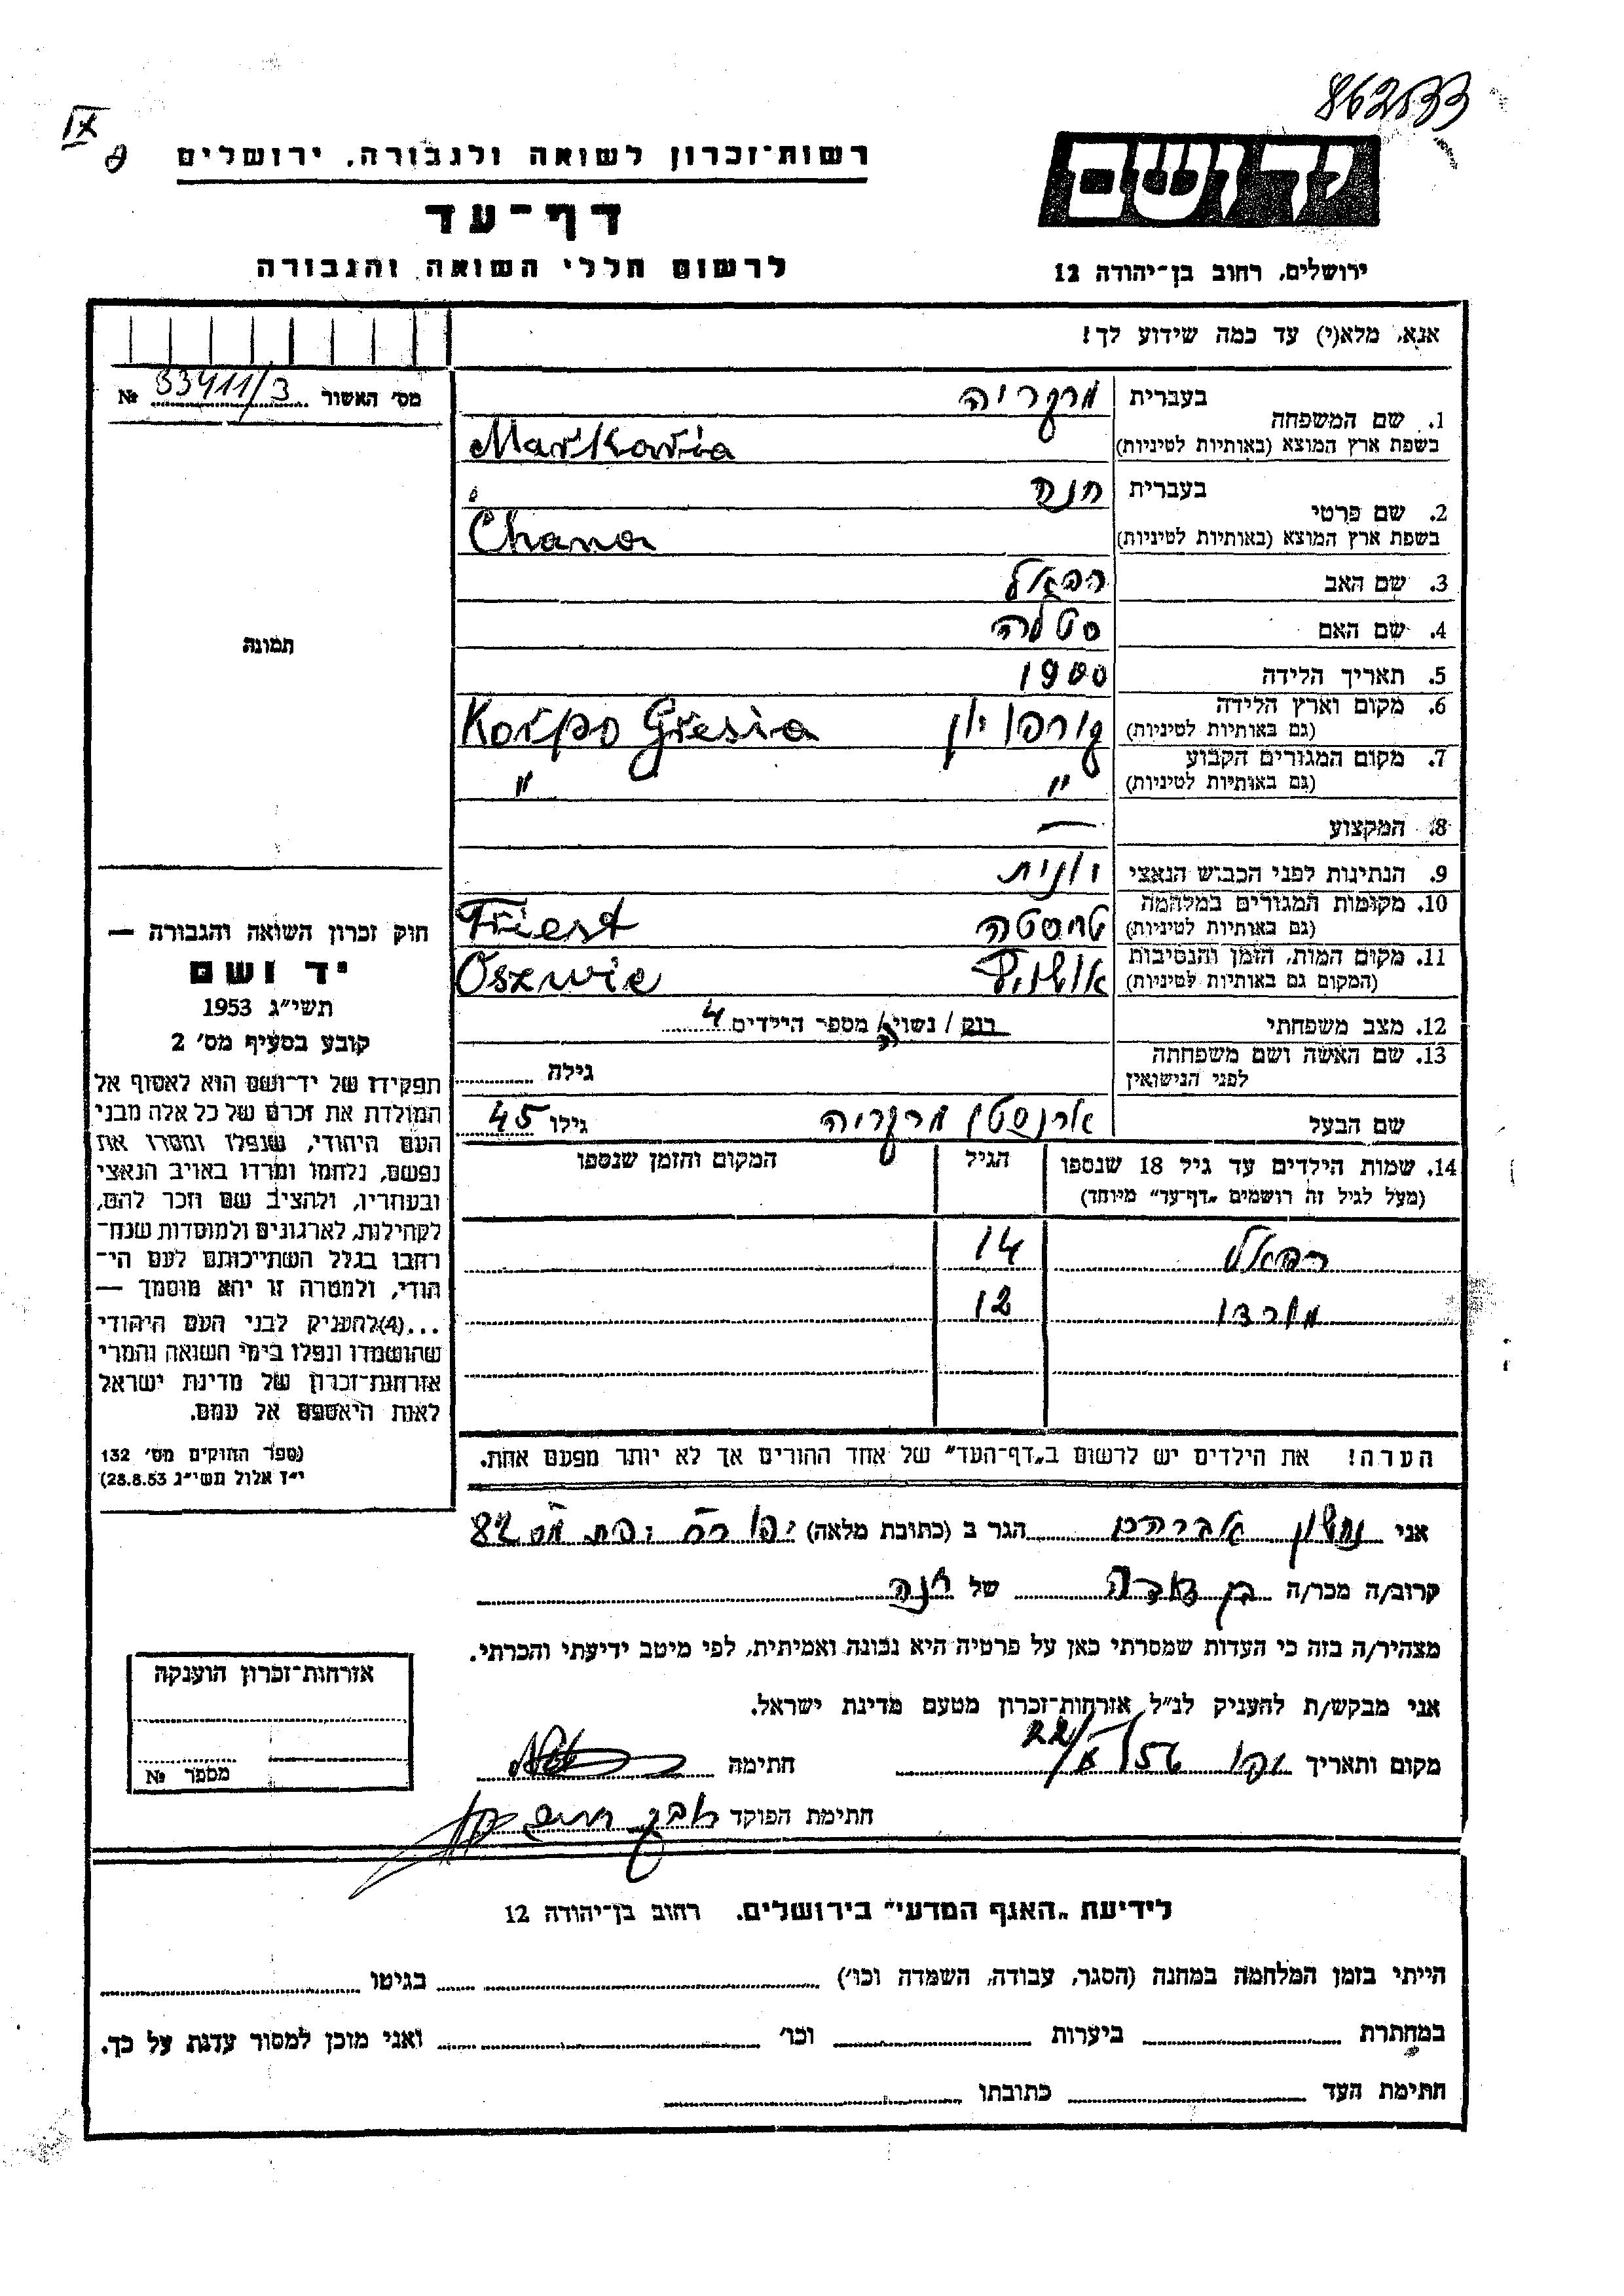 862533
IX
רשות־זכרון לשואה ולגבורה, ירושלים
יד ושם
דף־עד
לרשום חללי השואה והגבורה
ירושלים, רחוב בן־יהודה 12
אנא, מלא(י) עד כמה שידוע לך!
מס' האשור 33411/3 №
תמונה
1. שם המשפחה בעברית מרקריה
בשפת ארץ המוצא (באותיות לטיניות) Markaria
2. שם פרטי בעברית חנה
בשפת ארץ המוצא (באותיות לטיניות) Chana
3. שם האב רפאל
4. שם האם סטלה
5. תאריך הלידה 1900
6. מקום וארץ הלידה (גם באותיות לטיניות) קורפו יון Korpo Gresia
7. מקום המגורים הקבוע (גם באותיות לטיניות) " "
8. המקצוע —
9. הנתינות לפני הכבוש הנאצי יונית
10. מקומות המגורים במלחמה (גם באותיות לטיניות) טריסטה Triest
11. מקום המות, הזמן והנסיבות (המקום גם באותיות לטיניות) אושויץ Oszwic
12. מצב משפחתי רוק / נשוי/ה מספר הילדים 4
13. שם האשה ושם משפחתה לפני הנישואין גילה
שם הבעל ארנסטו מרקריה גילו 45
14. שמות הילדים עד גיל 18 שנספו הגיל המקום והזמן שנספו
(מעל לגיל זה רושמים „דף־עד" מיוחד)
רפאל 14
12
הערה! את הילדים יש לרשום ב„דף־העד" של אחד ההורים אך לא יותר מפעם אחת.
חוק זכרון השואה והגבורה —
יד ושם
תשי"ג 1953
קובע בסעיף מס' 2
תפקידו של יד־ושם הוא לאסוף אל
המולדת את זכרם של כל אלה מבני
העם היהודי, שנפלו ומסרו את
נפשם, נלחמו ומרדו באויב הנאצי
ובעוזריו, ולהציב שם וזכר להם,
לקהילות, לארגונים ולמוסדות שנח־
רבו בגלל השתייכותם לעם הי־
הודי, ולמטרה זו יהא מוסמך —
...(4)להעניק לבני העם היהודי
שהושמדו ונפלו בימי השואה והמרי
אזרחות־זכרון של מדינת ישראל
לאות היאספם אל עמם.
(ספר החוקים מס' 132
י"ז אלול תשי"ג 28.8.53)
אני נחשון אברהם הגר ב (כתובת מלאה) 82
קרוב/ה מכר/ה בן דודה של חנה
מצהיר/ה בזה כי העדות שמסרתי כאן על פרטיה היא נכונה ואמיתית, לפי מיטב ידיעתי והכרתי.
אני מבקש/ת להעניק לנ"ל אזרחות־זכרון מטעם מדינת ישראל.
מקום ותאריך יפו 22/ חתימה
חתימת הפוקד
אזרחות־זכרון הוענקה
מספר №
לידיעת „האגף המדעי" בירושלים. רחוב בן־יהודה 12
הייתי בזמן המלחמה במחנה (הסגר, עבודה, השמדה וכו') בגיטו
במחתרת ביערות וכו' ואני מוכן למסור עדות על כך.
חתימת העד כתובתו